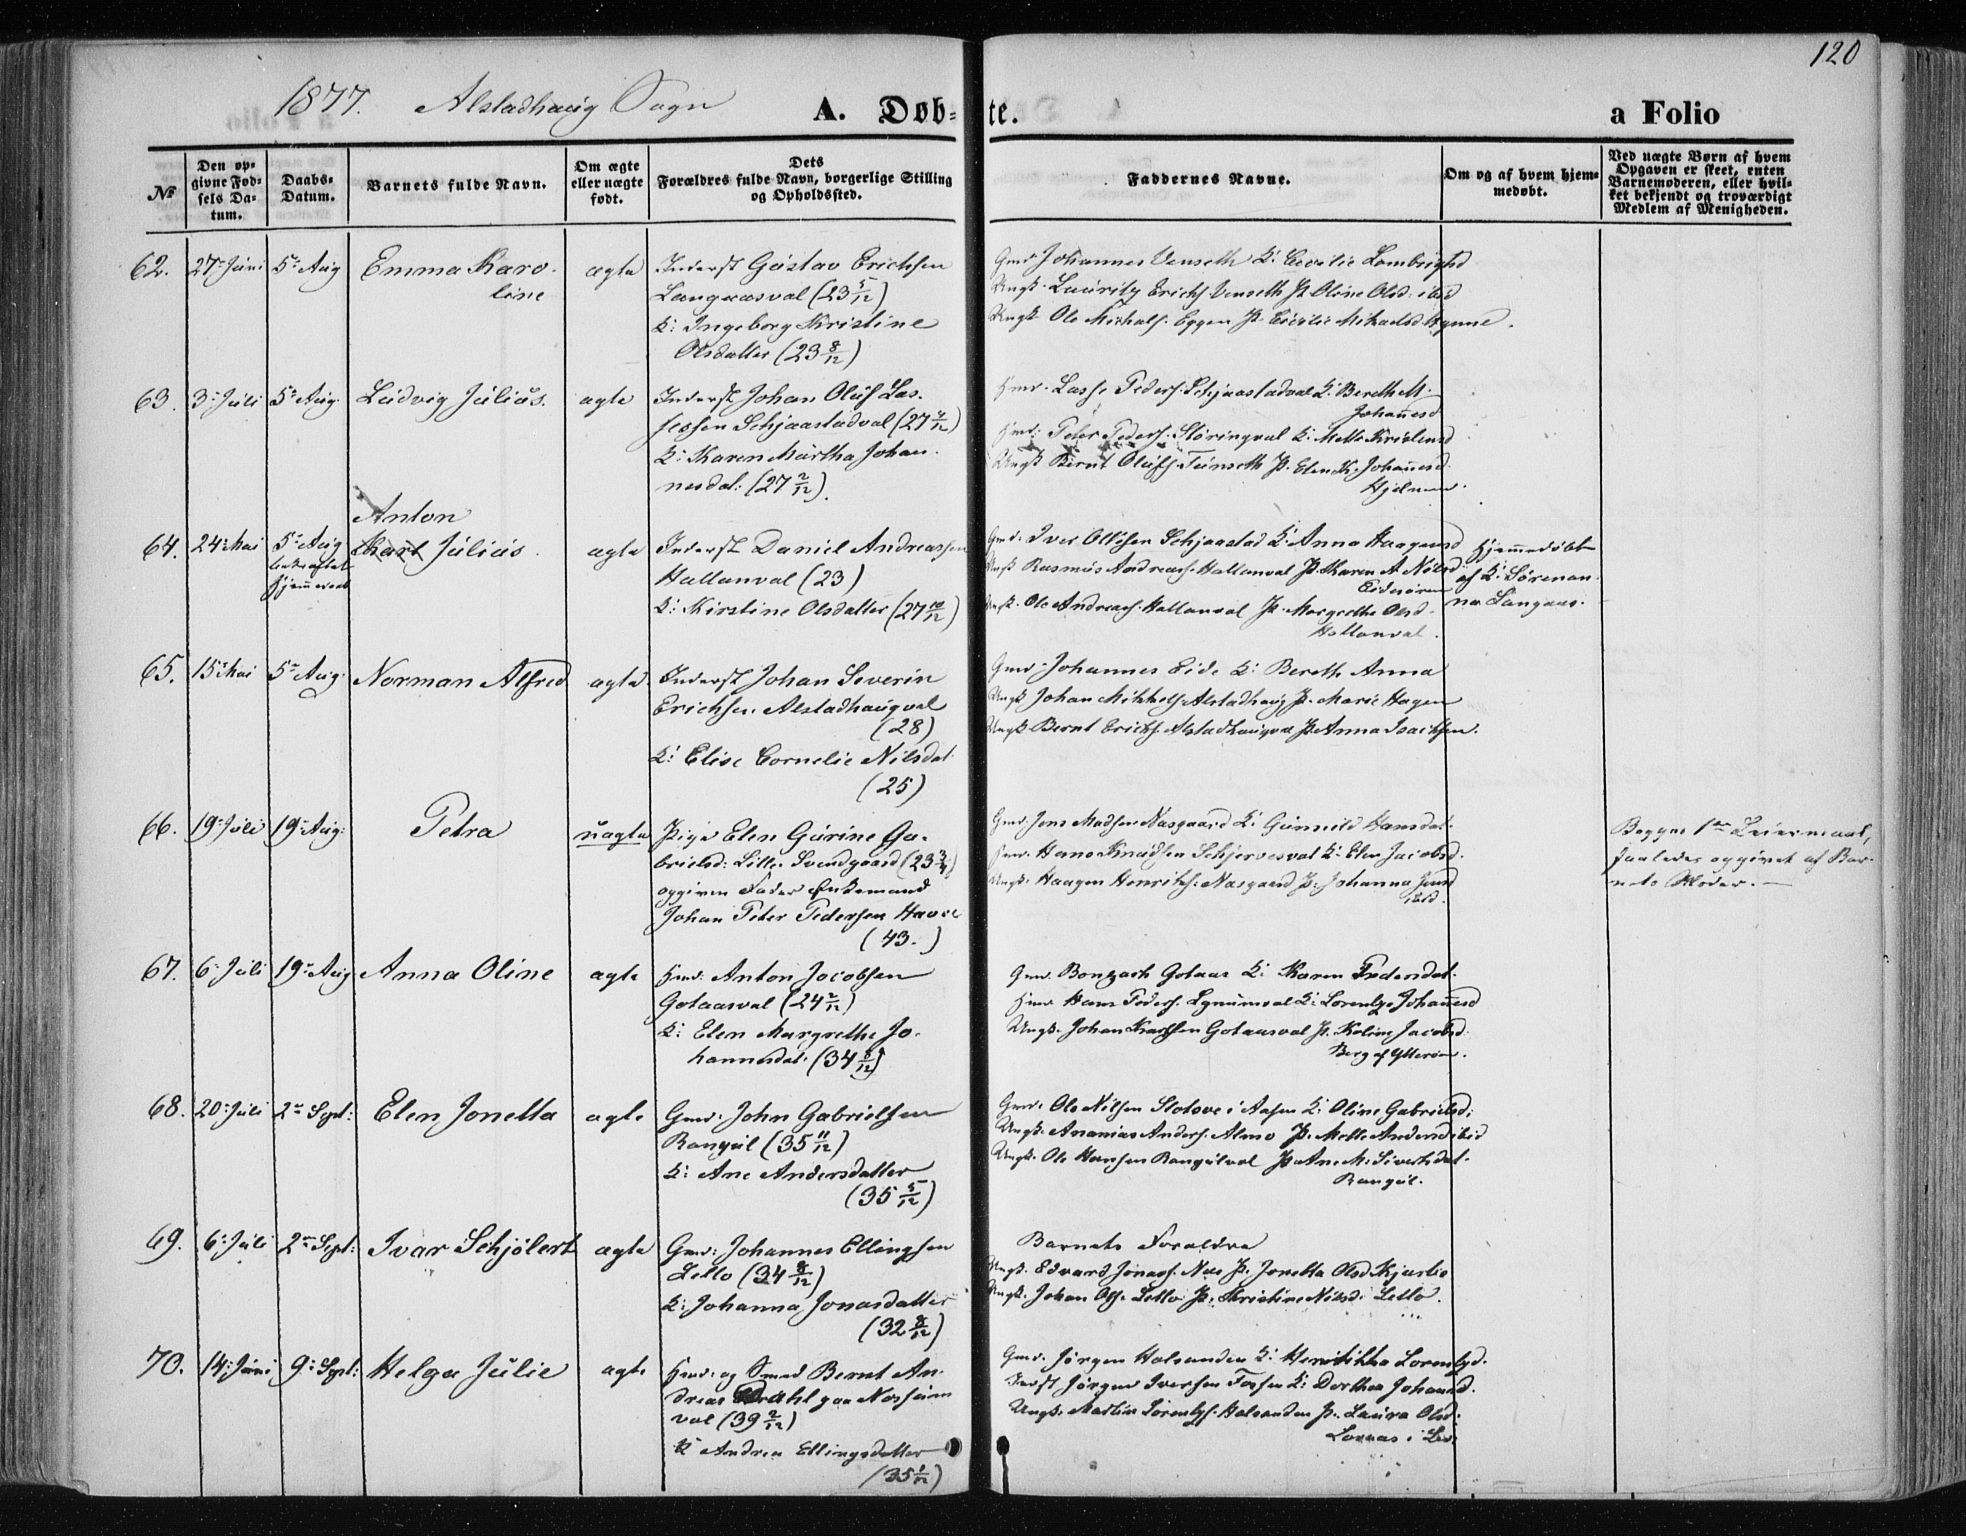 120
1877. Alstadhaug Sogn
A. Døb-te.
a Folio
№
Den op-
givne Fød-
sels Da-
tum.
Daabs-
Datum.
Barnets fulde Navn.
Om ægte
eller uægte
født.
Dets
Forældres fulde Navn, borgerlige Stilling
og Opholdssted.
Faddernes Navne.
Om og af hvem hjem-
medøbt.
Ved uægte Børn af hvem
Opgaven er skeet, enten
Barnemoderen, eller hvil-
ket bekjendt og troværdigt
Medlem af Menigheden.
62. 27 Juni 5 Aug Emma Karo-
line
ægte
Inderst Gustav Erichsen
Langaasval (23 5/12)
K: Ingeborg Kristine
Olsdatter (23 8/12)
Gmd. Johannes Venseth K: Cecilie
Ungk. Lauritz Erichs Venseth P. Oline Olsd. ibid
Ungk. Ole Michals. Eggen P. Mikaelsd.
63. 3 Juli 5 Aug. Ludvig Julius.
ægte
Inderst Johan Oluf Las-
sesen Schjaastadval (27 /12)
K: Karen Martha Johan-
nesdat: (27 2/12).
Hmd. Lasse Peders. Schjaastadval K. Bereth M.
Johannesd
Hmd: Peter Peders. Støringval K: Mette
Ungk Bernt Olufs. Tunseth P. Elen K. Johannesd.
64. 24 Mai 5 Aug
Hjemmedøbt
Anton
Karl Julius.
ægte
Inderst Daniel Andreassen
Hallanval (23)
K: Kirstine Olsdatter (27 10/12)
Gmd. Iver Ottesen Schjaastad K: Anna Haagensd
Ungk Rasmus Andreas. Hallanval P. Karen A Nilsd
Ungk. Ole Andreas. Hallanval P. Margrethe Olsd.
Hallanval.
Hjemmedøbt
af K. Sørenan-
na Langaas.
65. 15 Mai 5 Aug. Norman Alfred
ægte.
Inderst Johan Severin
Erichsen Alstadhaugval
(28)
K: Elise Cornelie Nilsdat.
(25)
Gmd. Johannes Eide K: Bereth Anna
Ungk Johan Mikkels. Alstadhaug P. Marie Hagen
Ungk Bernt Erichs. Alstadhaugval P. Anna Isachsen.
66. 19 Juli 19 Aug: Petra
uægte
Pige Elen Gurine Ga-
brielsd: Lille Svendgaard (23 3/4)
opgiven Fader Enkemand
Johan Peter Pedersen Havve
(43.)
Gmd. Jens Madsen Nasgaard K: Gunild Hansdat.
Hmd. Hans Knudsen Schjervesval K: Elen Jacobsd.
Ungk. Haagen Henriks: Nasgaard P. Johanna Jensd
ibid.
Begges 1ste Leiermaal,
saaledes opgivet af Bar-
nets Moder.
67. 6 Juli 19 Aug Anna Oline
ægte
Hmd: Anton Jacobsen
Gotaasval (24 2/12)
K: Elen Margrethe Jo-
hannesdat. (34 8/12)
Gmd. Gotaas K: Karen Pedersdat.
Hmd. Hans Peders. Lynumval K: Lorentze Johannesd
Ungk. Johan Gotaasval P. Jacobsd.
Berg af Ytterøen.
68. 20 Juli 2 Sept: Elen Jonetta
ægte
Gmd. John Gabrielsen
Rangul (35 11/12)
K: Ane Andersdatter
(35 5/12)
Gmd. Ole Nilsen Slotsve i Aasen K: Oline Gabrielsd.
Ungk. Ananias Anders. Almo P. Mette Andersd ibid
Ungk. Ole Hansen Rangulval P. Ane M. Sivertsdat.
Rangul.
69. 6 Juli 2 Sept: Ivar Schjølert
ægte
Gmd: Johannes Ellingsen
Letto (34 8/12)
K: Johanna Jonasdatter
(32 8/12)
Barnets Forældre
Ungk. Edvard Jonass. Næs P. Jonetta Olsd
Ungk. Johan Ols. Letto P. Kristine Nilsd. Letto.
70. 14 Juni 9 Sept: Helga Julie
ægte
Hmd: og Smed Bernt An-
dreas Dahl paa Nossum
val (39 2/12)
K Andrea Ellingsdatter
(35 1/12)
Gmd. Jørgen Halsanden K: Lorentzd.
Indst Jørgen Iversen Fossen K: Dorthea Johannesd.
Ungk. Martin Lorentzs. Halsanden P. Laura Olsd.